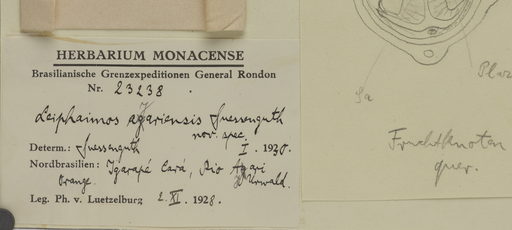 HERBARIUM MONACENSE
Brasilianische Grenzexpeditionen General Rondon
Nr. 23238.
Leiphaimos agariensis Suessenguth
nov. spec.
Determ.: Suessenguth I. 1930.
Nordbrasilien: Igarapé Cará, Rio Agari
Orange. Urwald.
Leg. Ph. v. Luetzelburg 2. XI. 1928.
Sa
Plaz
Fruchtknoten
quer.